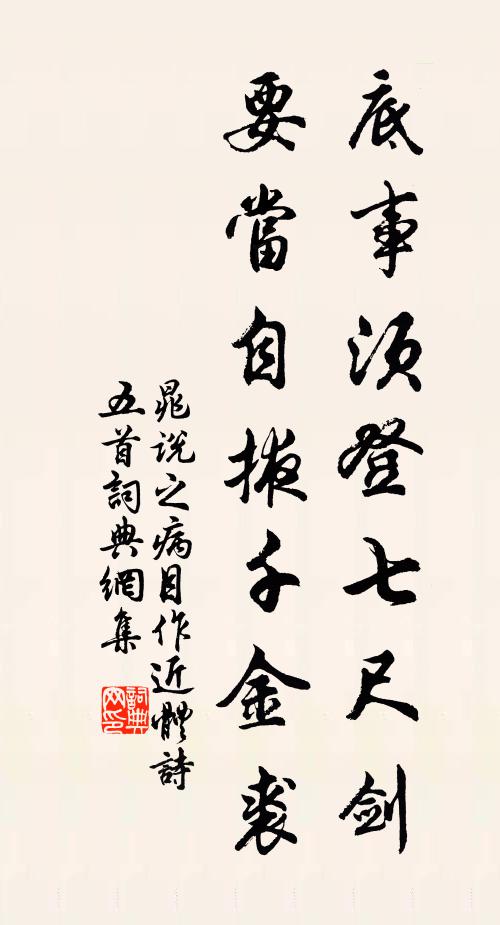 底事須登七尺劍
要當自掖千金裘
晁說之病目作近體詩
五首詞典網集
詞典
网印